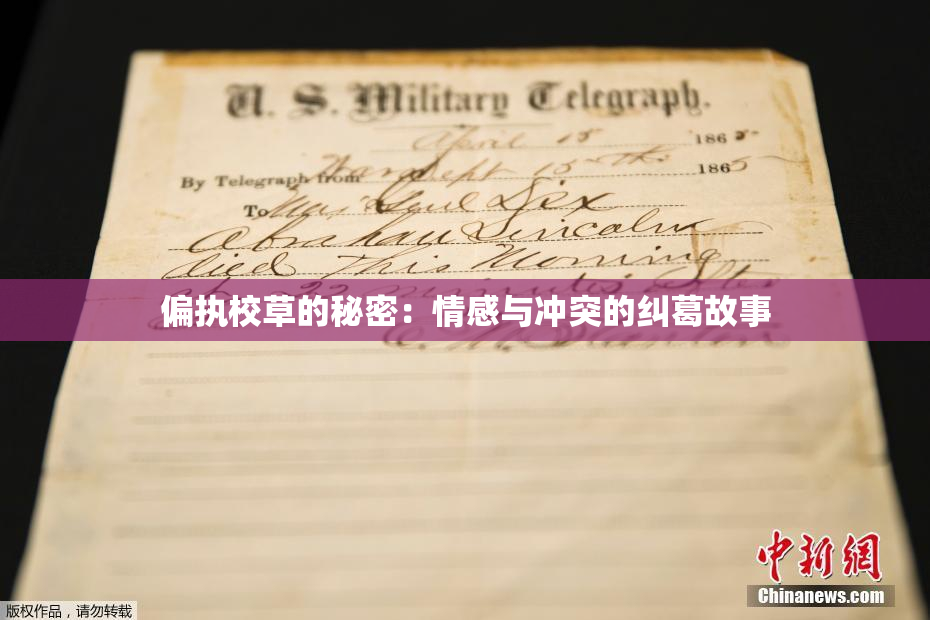 U. S. Military Telegraph.
April 15 1865
By Telegraph from War Dept 15th 1865
To Maj Genl Dix
Abraham Lincoln
died This Morning
at 22 minutes after
偏执校草的秘密：情感与冲突的纠葛故事
E. M. Stanton
中新网
Chinanews.com
版权作品，请勿转载